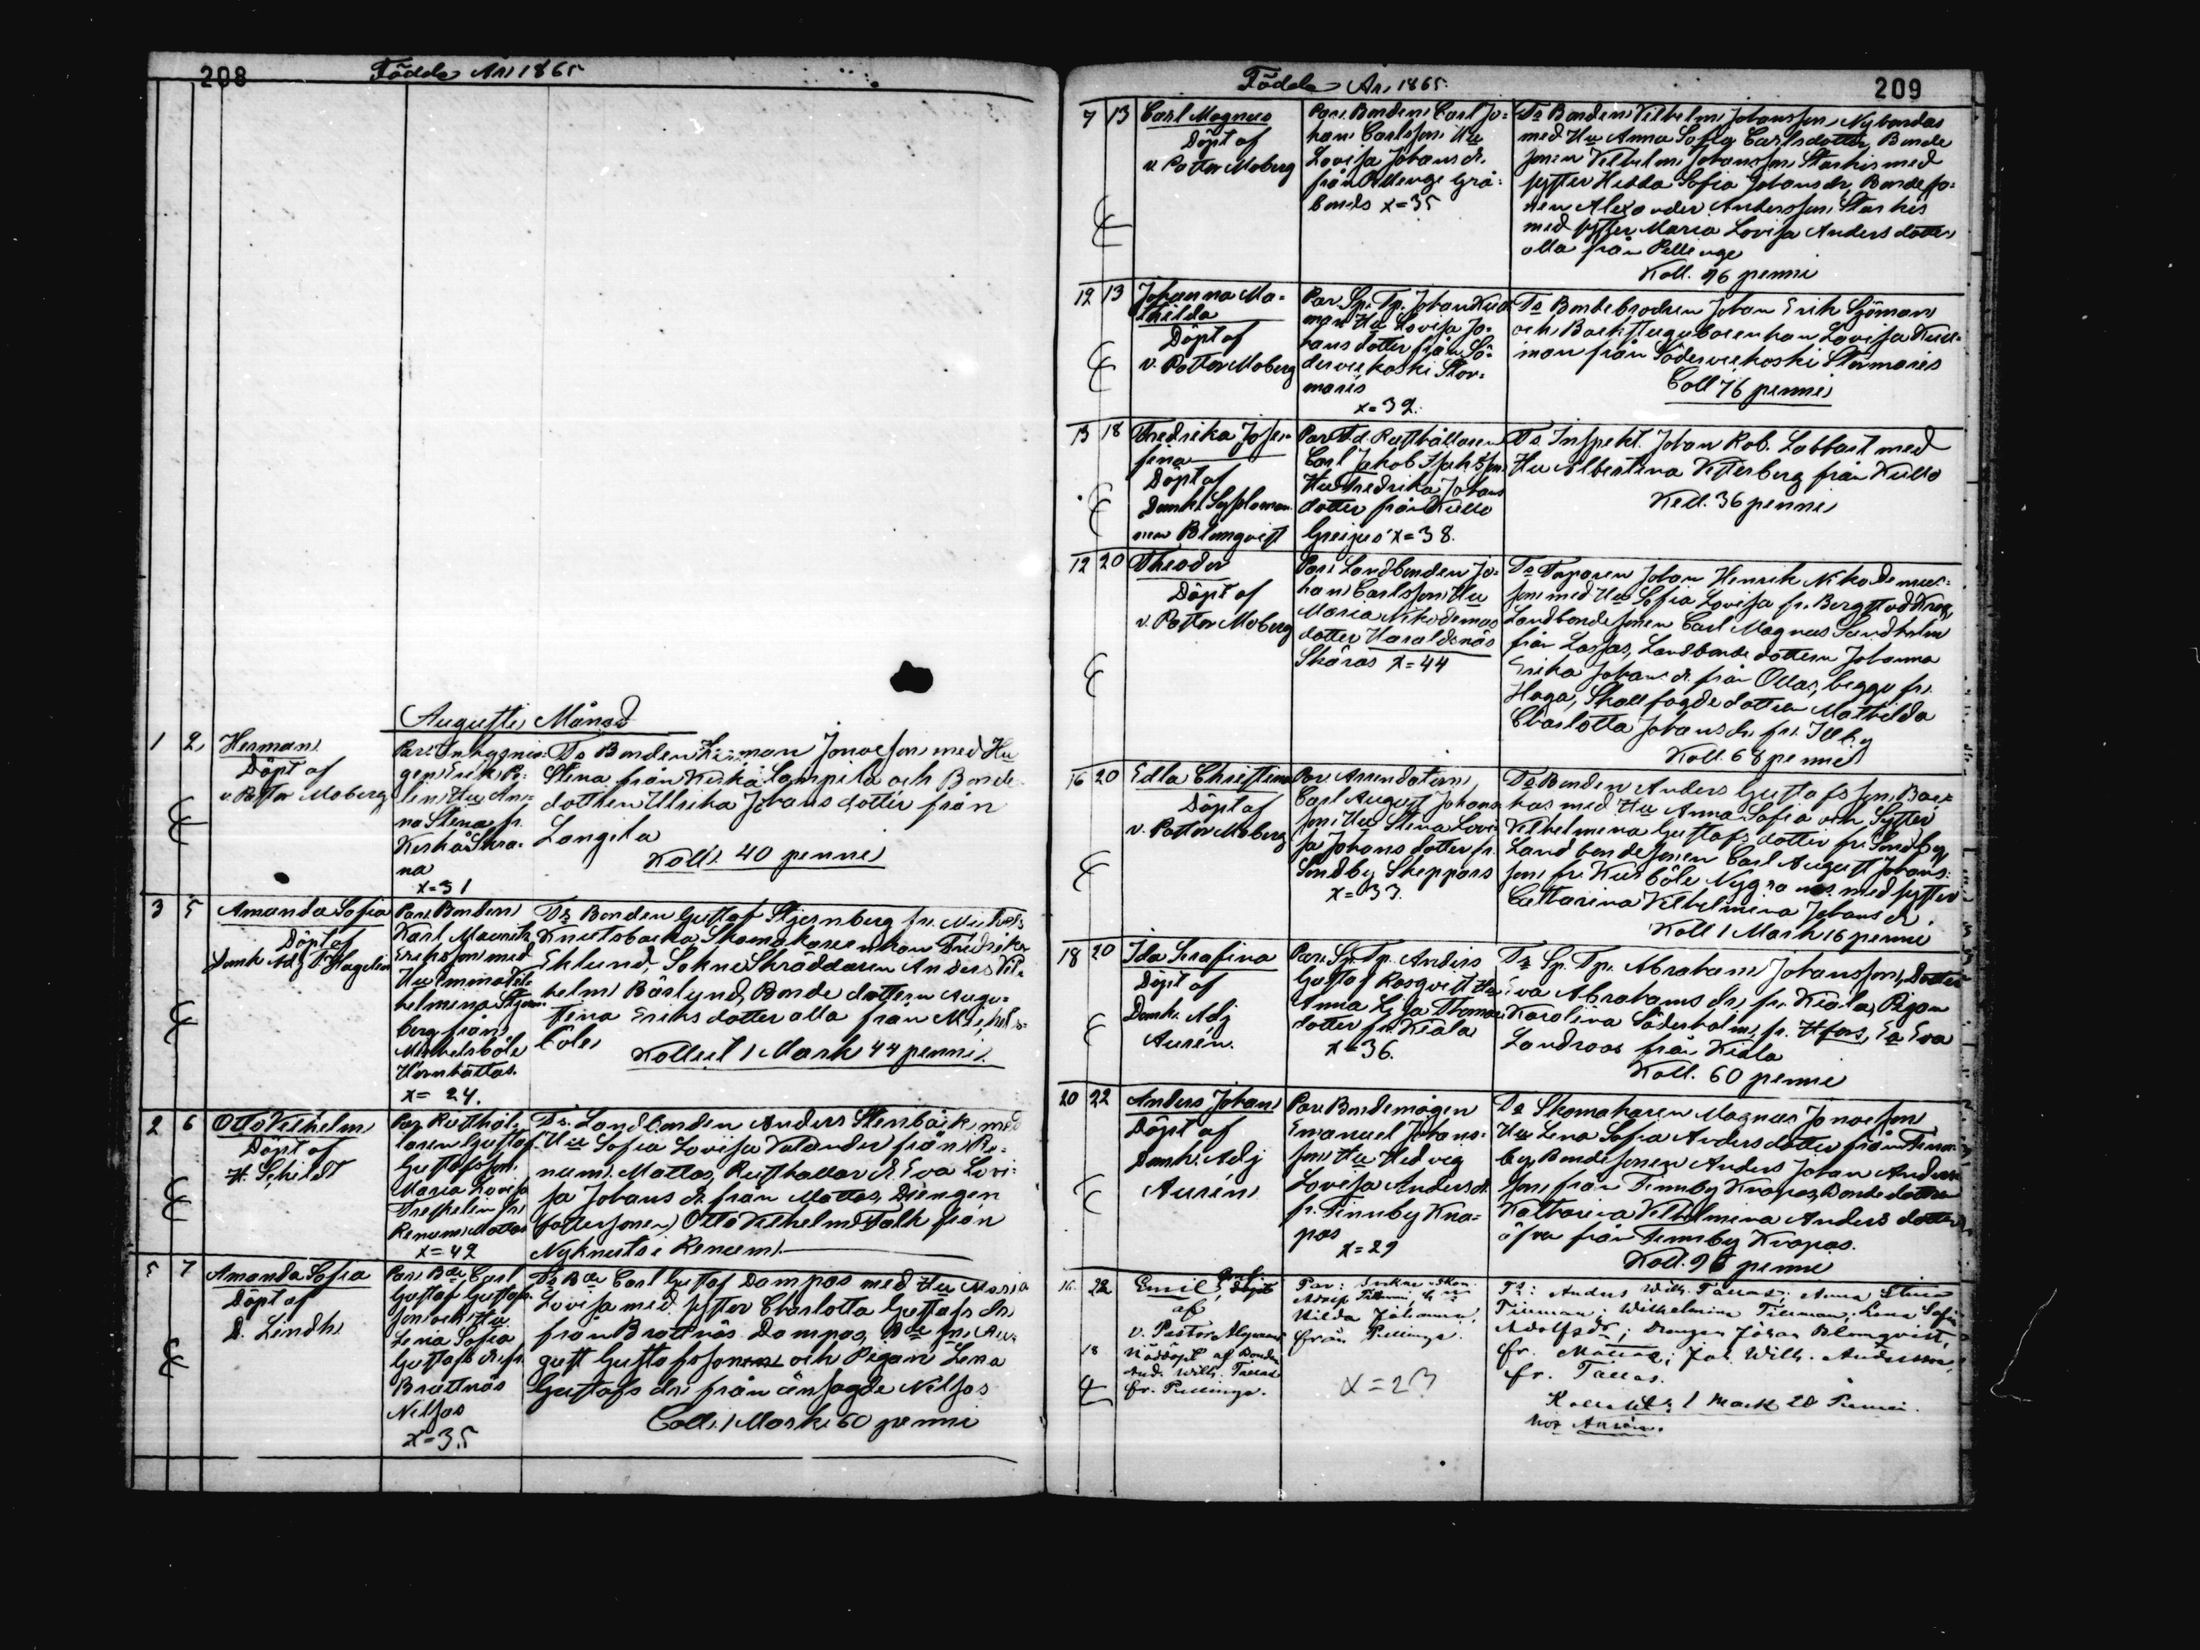 208
Födde År 1865
Augusti Månad
1 2 Herman
Döpt af
v. Pastor Moberg
na Stena fr.
x=31
Ts Bonden Herman Jonasson med Hu
Stena från Kerko Lampila och Bonde
dottren Ulrika Johans dotter från
Langila
Koll. 40 penni
3 5 Amanda Sofia
Döpt af
Domk Adj Hagelin
Par. Bonden
Karl Mauritz
Eriksson med
Hu Emma Vil-
helmina Stjern-
berg från
Mickelsböle
x= 24.
Ts Bonden Gustaf Stjernberg fr. Mickels
Knutsbacka Skomakareenkan Fredrika
Eklund, Sokne Skräddaren Anders Vil-
helm Bäslund, Bonde dottern Augu-
stina Eriksdotter alla från Mickels-
böle
Kollect 1 Mark 44 penni
2 6 Otto Vilhelm
Döpt af
H. Schildt
Par Rusthål-
laren Gustaf
Gustafsson
Maria Lovisa
Renum Mattas
x=42
Ts Landbonden Anders Stenbäck med
Hu Sofia Lovisa Valander från Re-
num Mattas, Rusthållar d. Eva Lovi-
sa Johans dr från Mattas, Drengen
fostersonen Otto Vilhelm Falk från
Nyknuts i Renum
5 7 Amanda Sofia
Döpt af
D. Lindh
Par. Bde Carl
Gustaf Gustafs-
son och Hu
Lena Sofia
Gustafs dr fr.
Brattnäs
Nilsas
x=35
Ts Bde Carl Gustaf Dampas med Hu Maria
Lovisa med syster Charlotta Gustafs dr
från Brattnäs Dampas, Bde sn Au-
gust Gustafsson och Pigan Lena
Gustafs dr från ansagde Nilsas
Coll. 1 Mark 60 penni
Födde År 1865.
209
7 13 Carl Magnus
Döpt af
v. Pastor Moberg
Par. Bonden Carl Jo-
han Carlsson Hu
Lovisa Johans dr.
från Pellinge Grå-
bonds x=35
Ts Bonden Vilhelm Johansson Nybondas
med Hu Anna Sofia Carlsdotter, Bonde
sonen Vilhelm Johansson Starkis med
syster Hedda Sofia Johans dr, Bondeso-
nen Alexander Andersson Starkis
med syster Maria Lovisa Anders dotter
alla från Pellinge
Koll. 96 penni
12 13 Johanna Ma-
thilda
Döpt af
v. Pastor Moberg
Par Sp. Tp. Johan Kull-
man Hu Lovisa Jo-
hans dotter från Sö-
derveekoski Stor-
maris
x=32.
Ts Bondebrodren Johan Erik Sjöman
och Backstuguboenkan Lovisa Kull-
man från Söderveekoski Stormaris
Coll 76 penni
13 18 Fredrika Jose-
fina
Döpt af
Domk. Syssloman-
nen Blomqvist
Par Fd. Rusthållaren
Carl Jakob Isaksson
Hu Fredrika Johans
dotter från Kullo
Greijus x=38.
Ts Inspekt. Johan Rob. Labbart med
Hu Albertina Vesterberg från Kullo
Koll. 36 penni
12 20 Theodor
Döpt af
v. Pastor Moberg
Par. Landbonden Jo-
han Carlsson Hu
Maria Nikodemus
dotter Haraldsnäs
Skåras x=44
Ts Torparen Johan Henrik Nikodemus-
son med Hu Sofia Lovisa fr. Bergstad Krog,
Landbondesonen Carl Magnus Sandholm
från Lassas, Landbonde dottern Johanna
Erika Johans dr från Ollas, begge fr.
Haga, Skallfogde dottren Mathilda
Charlotta Johans dr. fr. Illby
Koll. 68 penni
16 20 Edla Christina
Döpt af
v. Pastor Moberg
Par. Arrendatorn
Carl August Johans-
son Hu Stina Lovi-
sa Johans dotter fr.
Sondby Skeppars
x=33.
Ts Bonden Anders Gustafsson Bac-
kas med Hu Anna Sofia och Syster
Vilhelmina Gustafs dotter fr. Sondby
Landbondesonen Carl August Johans-
son fr. Kurböle Nygranas med syster
Catharina Vilhelmina Johans dr
Koll 1 Mark 16 penni
18 20 Ida Serafina
Döpt af
Domk. Adj
Aurén.
Par. Sp. Tp. Anders
Gustaf Rosqvist Hu
Anna Lisa Thomas
dotter fr. Kiala
x=36.
Ts Sp. Tp. Abraham Johansson, Dotter
Eva Abrahams dr, fr. Kiala, Pigan
Karolina Söderholm, fr. Hfors, Ea Eva
Landroos från Kiala
Koll. 60 penni
20 22 Anders Johan
Döpt af
Domk. Adj
Aurén
Par. Bondemågen
Emanuel Johans-
son Hu Hedvig
Lovisa Anders dr
fr. Finnby Kna-
pas
x=29
Ts Skomakaren Magnus Jonasson
Hu Lena Sofia Anders dotter från Finn-
by, Bondesonen Anders Johan Anders-
son från Finnby Knapas, Bonde dottren
Katharina Vilhelmina Anders dotter
äfven från Finnby Knapas.
Koll. 96 penni
16 22 Emil, döpt
af
v. Pastor Alopaeus
18 Nöddöpt af Bonden
And. Wilh. Tallas
fr. Pellinge.
Hilda Johanna,
från Pellinge.
x=23
Ts: Anders Wilh. Tallas; Anna Stina
Tillman; Wilhelmina Tillman; Lena Sofia
Adolfsdr; Drengen Johan Blomqvist,
fr. Mattas; Joh. Wilh. Andersson,
fr. Tallas.
Kollekt: 1 Mark 20 Penni.